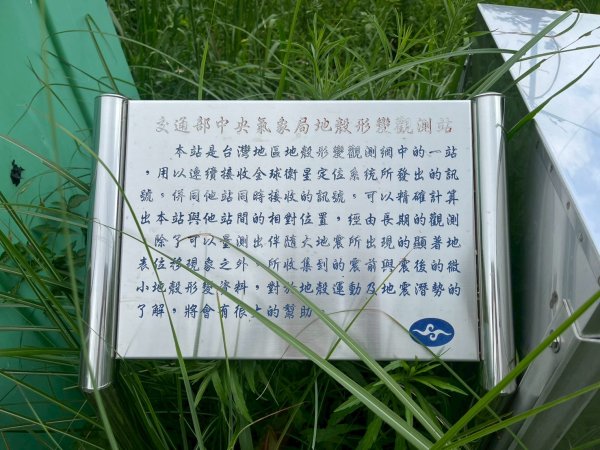 交通部中央氣象局地殼形變觀測站
本站是台灣地區地殼形變觀測網中的一站
，用以連續接收全球衛星定位系統所發出的訊
號。併同他站同時接收的訊號，可以精確計算
出本站與他站間的相對位置，經由長期的觀測
，除了可以量測出伴隨大地震所出現的顯著地
表位移現象之外，所收集到的震前與震後的微
小地殼形變資料，對於地殼運動及地震潛勢的
了解，將會有很大的幫助。